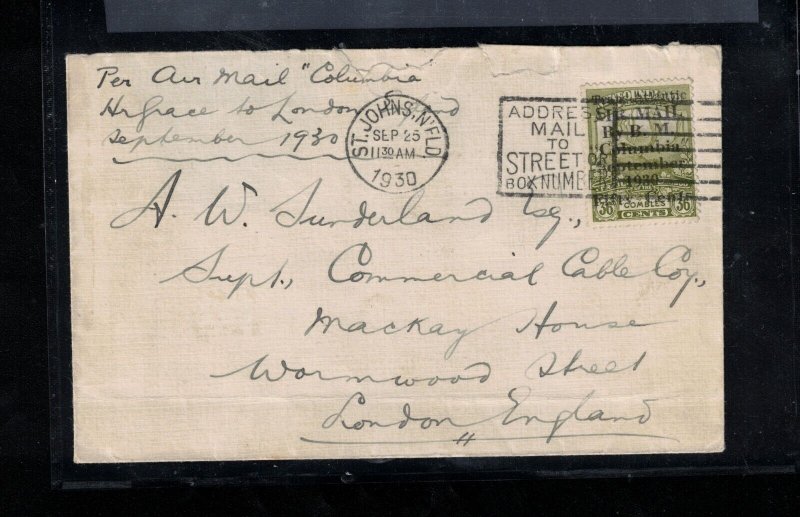 Per Air Mail "Columbia"
Hr Grace to London
September 1930
ST. JOHN'S, N'FLD.
SEP 25
11 30 AM
1930
ADDRESS
MAIL
TO
STREET OR
BOX NUMBER
Trans-Atlantic
AIR MAIL
By B. M.
"Columbia"
September
1930
Fifty Cents
36 COMBLES 36
CENTS
A. W. Sunderland Esq.,
Supt., Commercial Cable Coy.,
Mackay House
Wormwood Street
London England